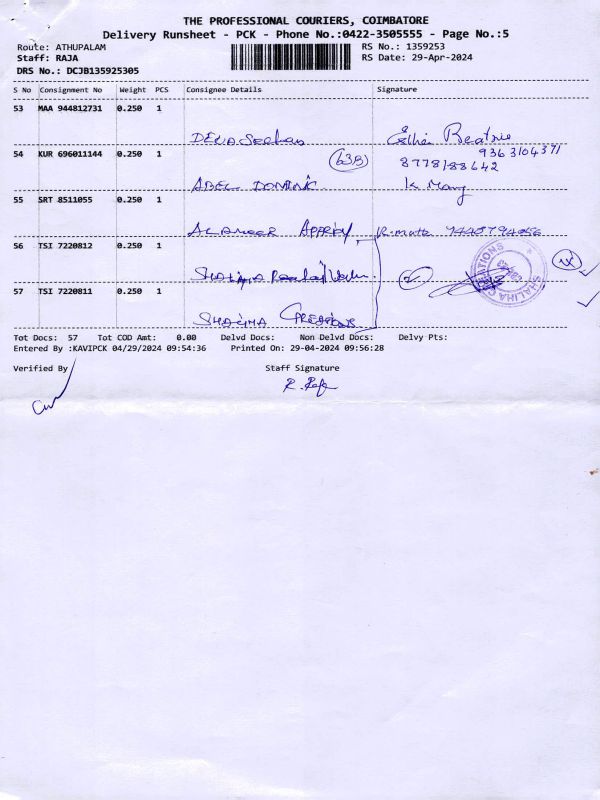 THE PROFESSIONAL COURIERS, COIMBATORE
Delivery Runsheet - PCK - Phone No.:0422-3505555 - Page No.:5
Route: ATHUPALAM RS No.: 1359253
Staff: RAJA RS Date: 29-Apr-2024
DRS No.: DCJB135925305
S No Consignment No Weight PCS Consignee Details Signature
53 MAA 944812731 0.250 1
Beatrie
54 KUR 696011144 0.250 1 63B 9363104371
8778188642
ABEL DOMINIC
55 SRT 8511055 0.250 1
AL AMEER
56 TSI 7220812 0.250 1
SHALIMA CREATIONS
57 TSI 7220811 0.250 1
SHALIMA
Tot Docs: 57 Tot COD Amt: 0.00 Delvd Docs: Non Delvd Docs: Delvy Pts:
Entered By :KAVIPCK 04/29/2024 09:54:36 Printed On: 29-04-2024 09:56:28
Verified By Staff Signature